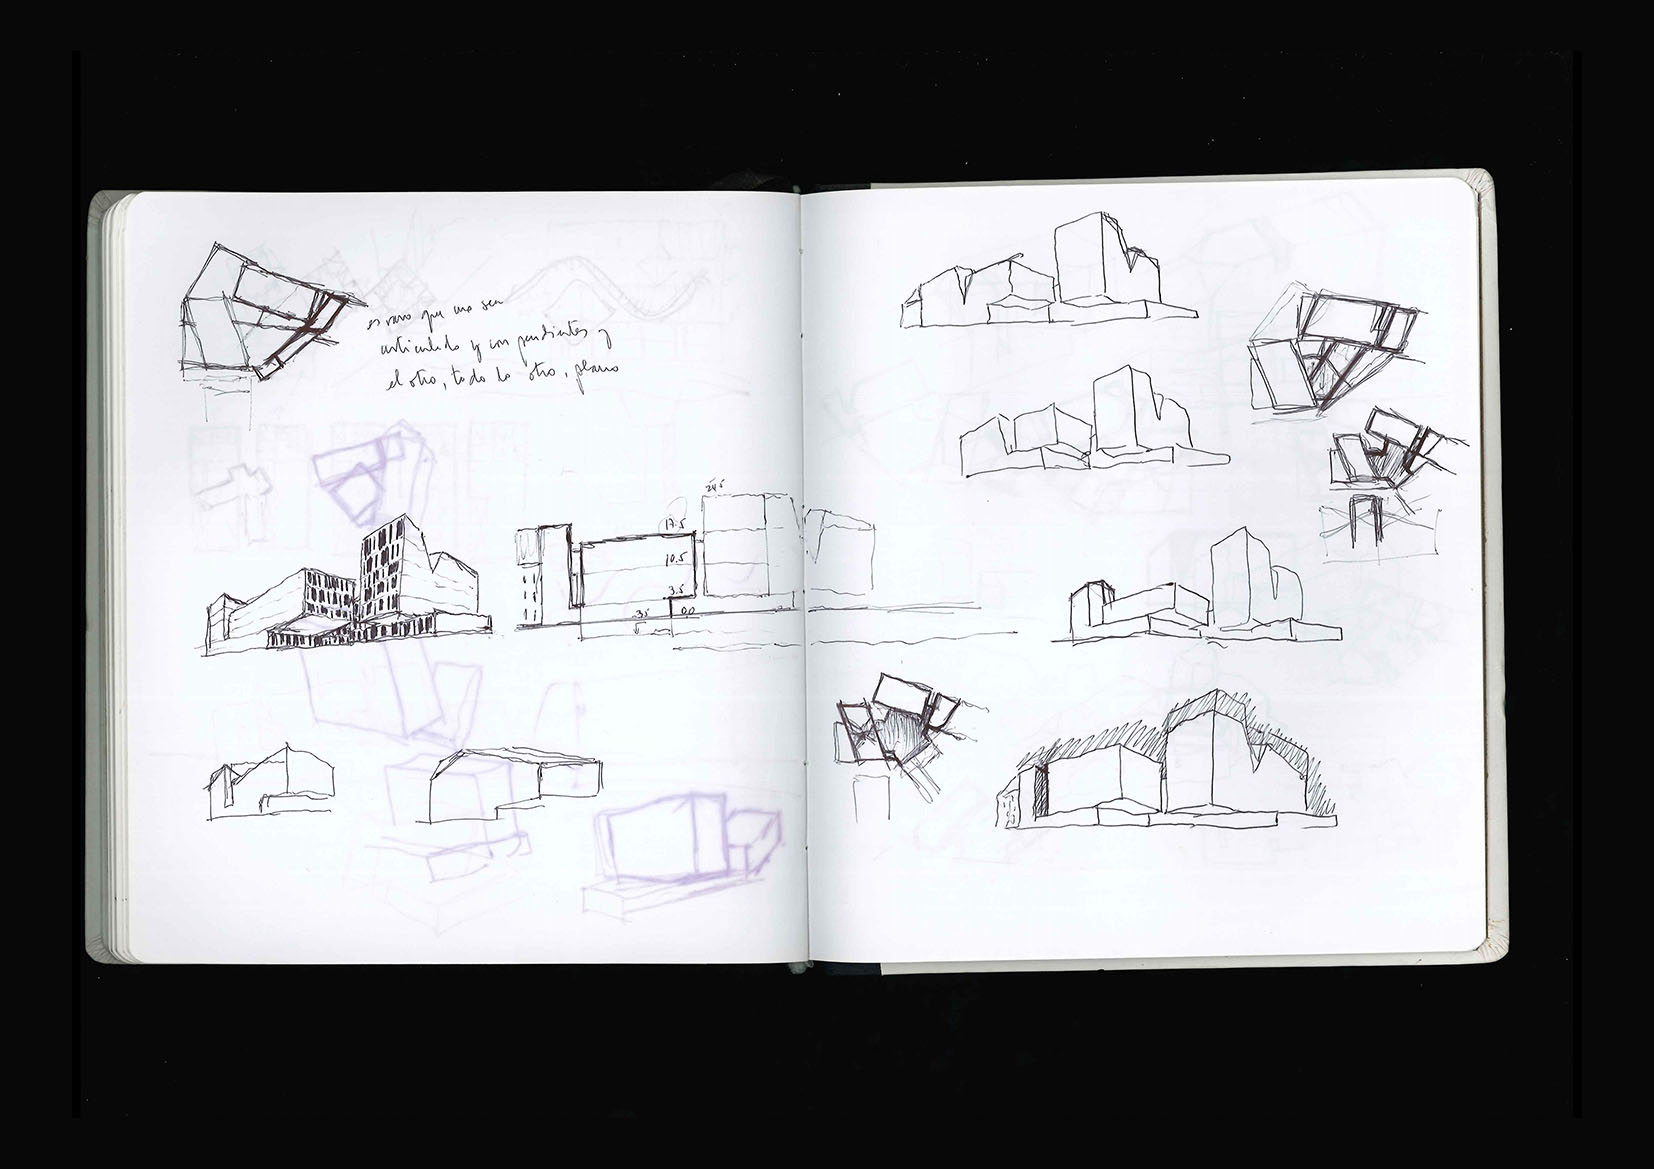 es raro que uno sea
articulado y con pendientes y
el otro, todo lo otro, plano
24.5
17.5
10.5
3.5
0.0
-3.5